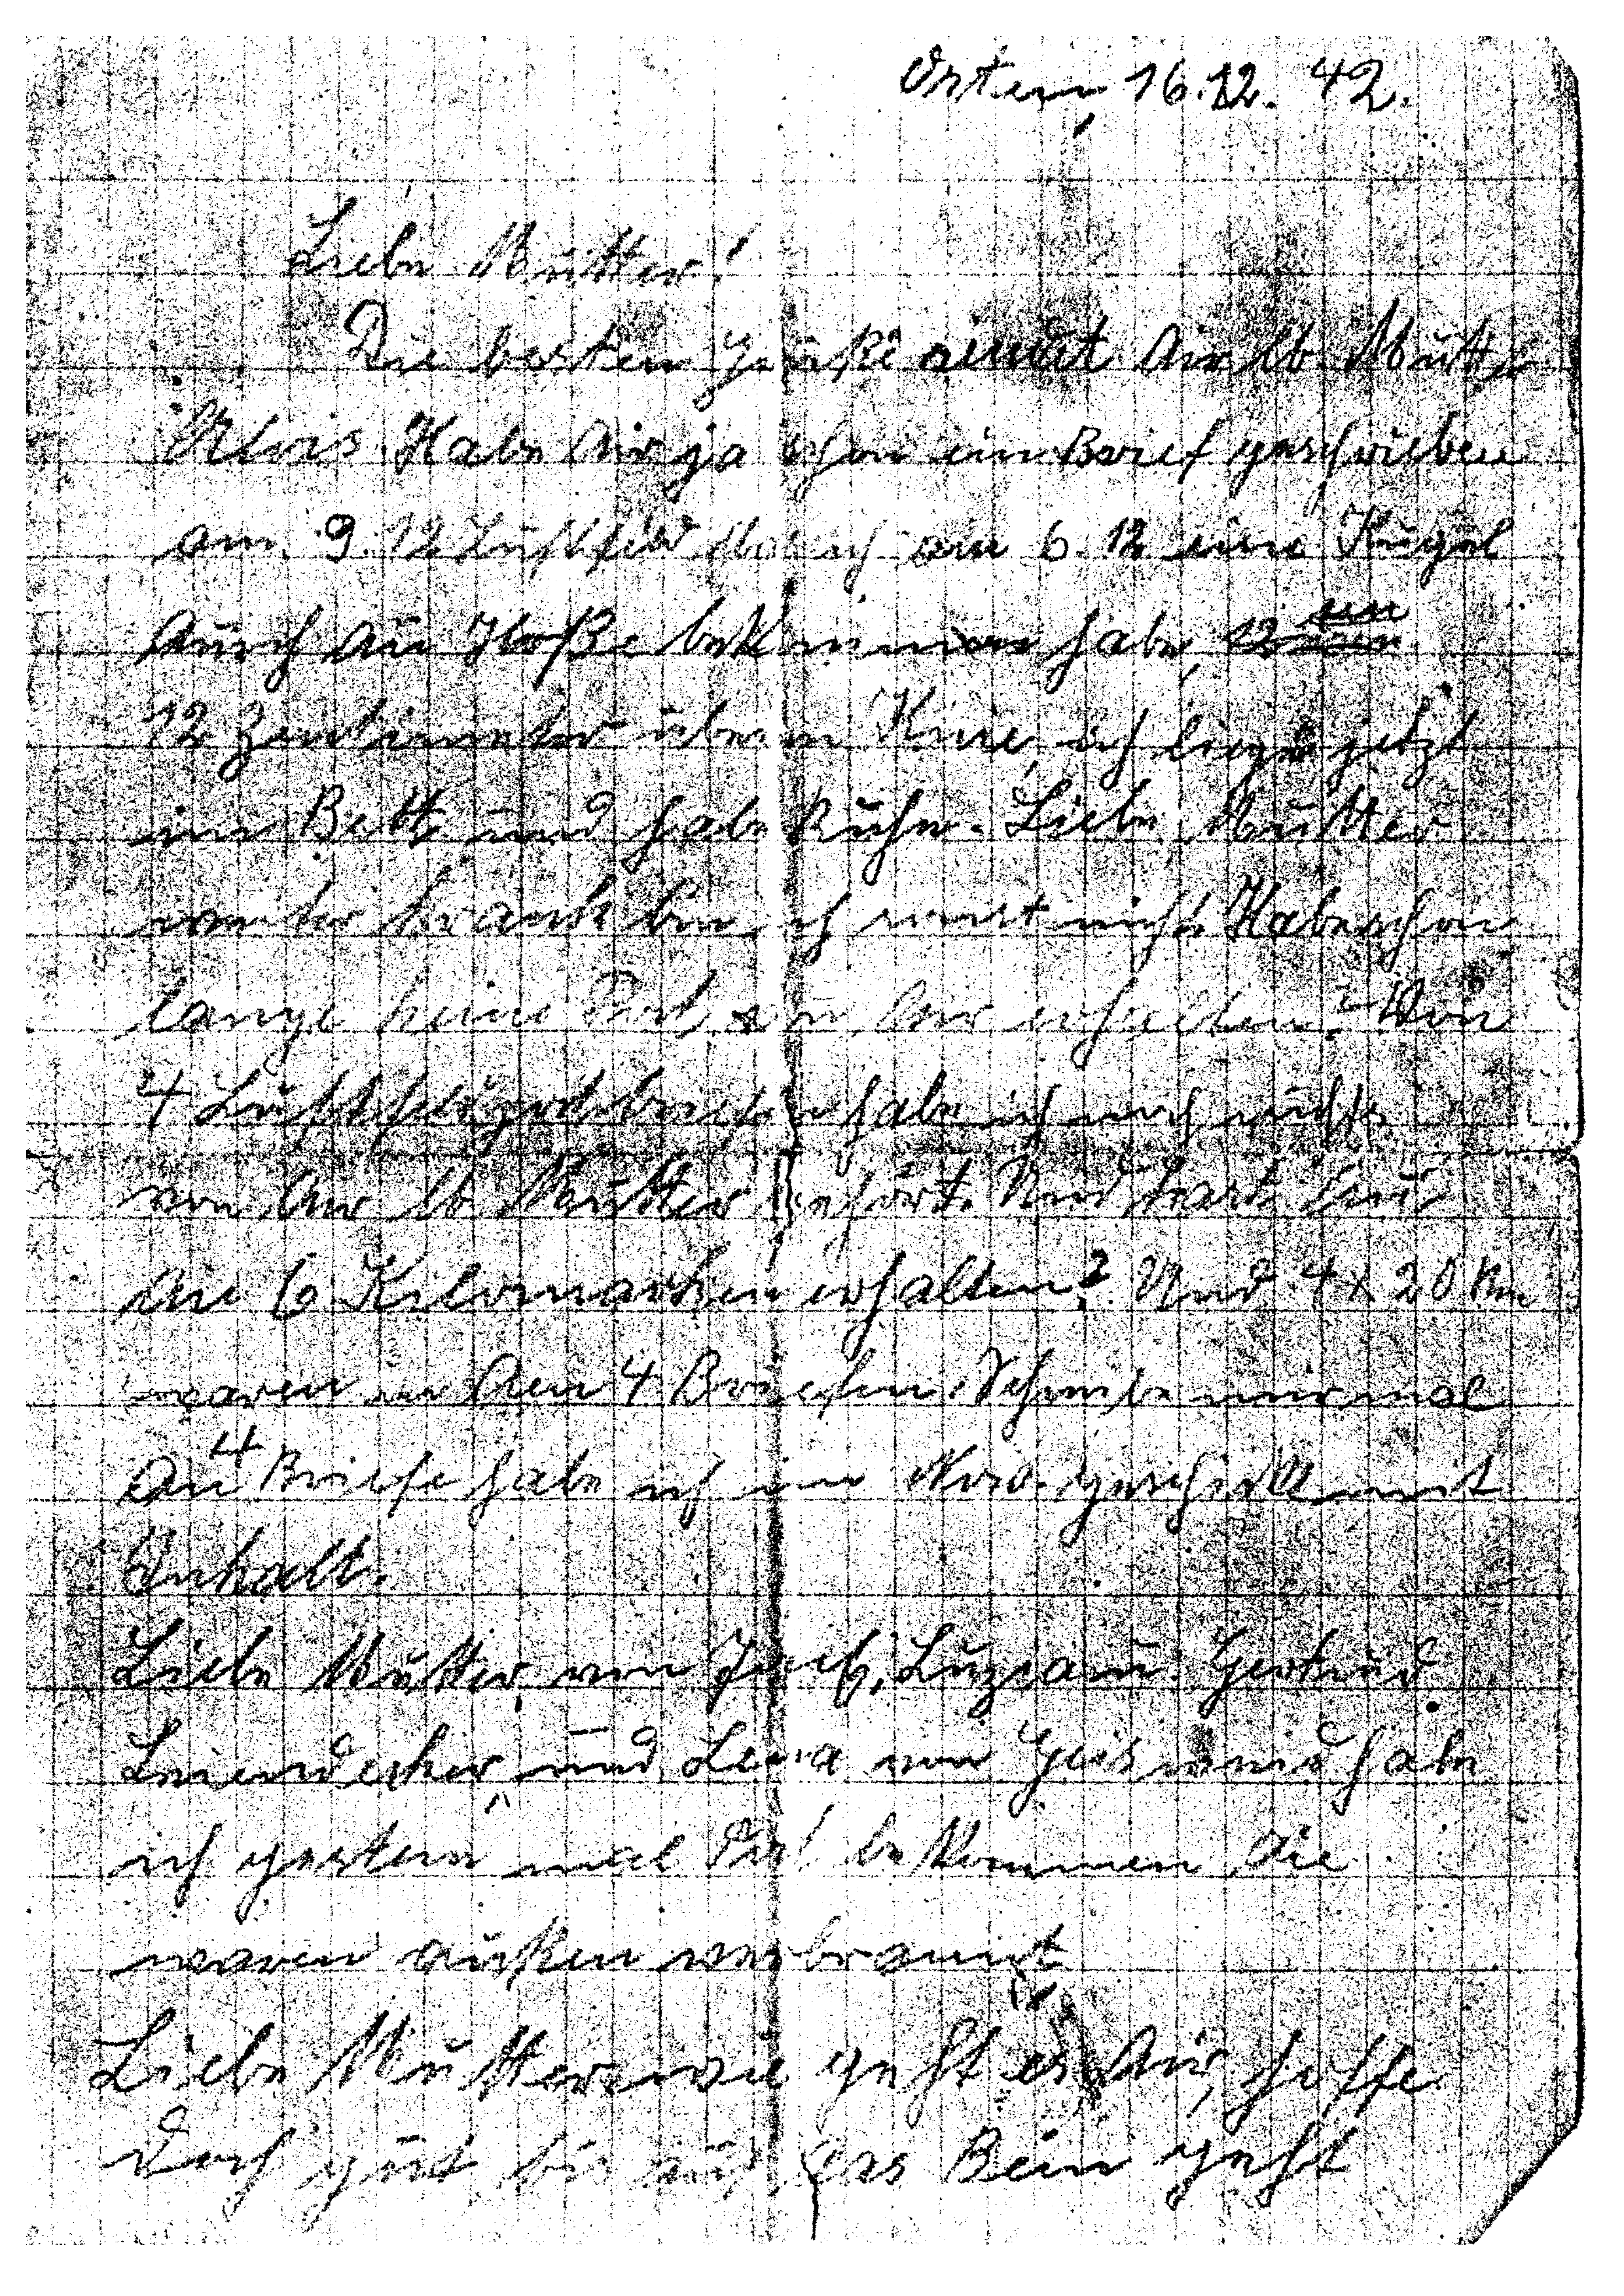 Osten, 16.12. 42.
Liebe Mutter!
Die besten Grüße sendet dir lb. Mutter
Alois. Habe dir ja schon ein Brief geschrieben
am 9.12 Luftfeld das ich am 6.12 eine Kugel
durch die bekommen habe,
12 Zentimeter überm Knie, ich liege jetzt
im Bett und habe Ruhe. Liebe Mutter
weiter krank bin ich sonst nicht. Habe schon
lange keine Post von dir erhalten? Von
4 Luftfeldpostbriefen habe ich noch nichts
von dir lb. Mutter gehört. Und hast du
die 6 Kilomarken erhalten? Und 4 x 20 Rm
waren in den 4 Briefen. Schreibe mir mal
die 4 Briefe habe ich im Nov. geschickt mit
Inhalt.
Liebe Mutter, von Josef, Luzia u. Gertrud
Leiendecker, und Lena von habe
ich gestern mal Post bekommen die
waren außen verbrannt
Liebe Mutter wie geht es dir, hoffe
doch gut bis auf das Bein geht